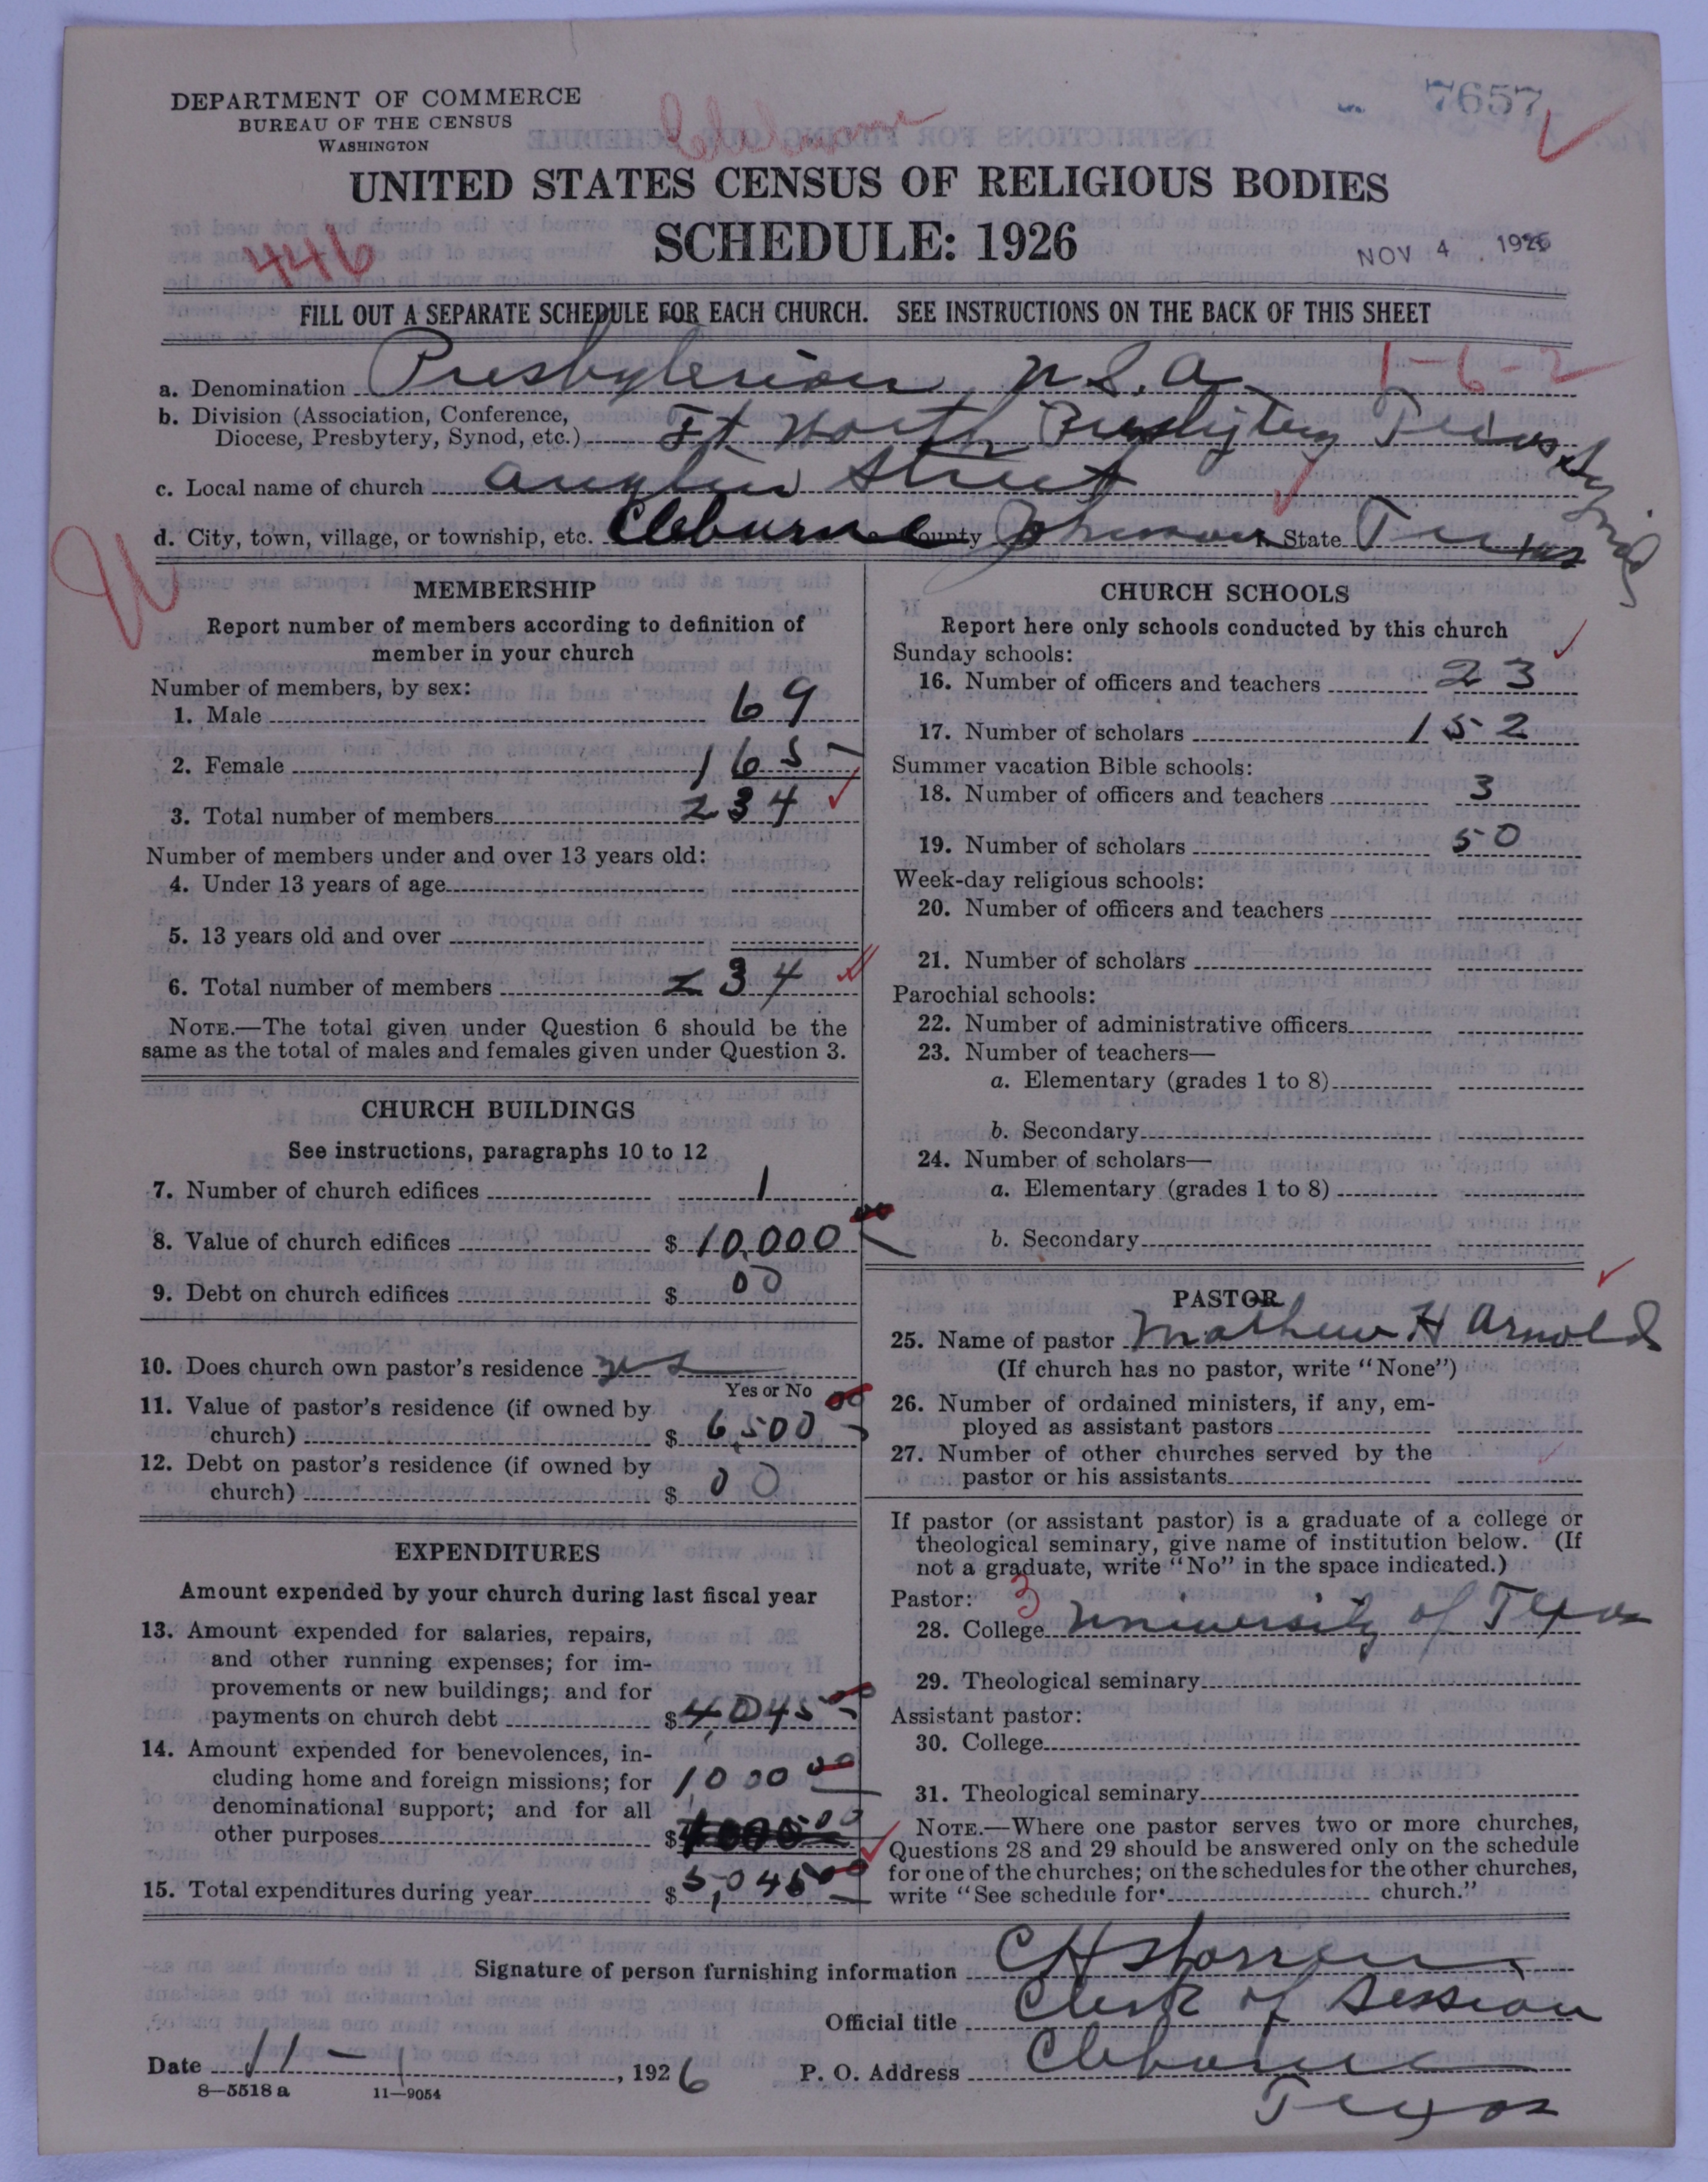 DEPARTMENT OF COMMERCE
BUREAU OF THE CENSUS
WASHINGTON
Cleburne
7657
UNITED STATES CENSUS OF RELIGIOUS BODIES
SCHEDULE: 1926
446
NOV 4 1926
FILL OUT A SEPARATE SCHEDULE FOR EACH CHURCH. SEE INSTRUCTIONS ON THE BACK OF THIS SHEET
a. Denomination Presbyterian U.S.A. 1-6-2
b. Division (Association, Conference,
Diocese, Presbytery, Synod, etc.) Ft Worth Presbytery Texas Synod
c. Local name of church Anglin Street
d. City, town, village, or township, etc. Cleburne County Johnson State Texas
MEMBERSHIP
Report number of members according to definition of
member in your church
Number of members, by sex:
1. Male 69
2. Female 165
3. Total number of members 234
Number of members under and over 13 years old:
4. Under 13 years of age
5. 13 years old and over
6. Total number of members 234
NOTE.—The total given under Question 6 should be the
same as the total of males and females given under Question 3.
CHURCH BUILDINGS
See instructions, paragraphs 10 to 12
7. Number of church edifices 1
8. Value of church edifices $ 10,000 00
9. Debt on church edifices $ 00
10. Does church own pastor's residence yes
Yes or No
11. Value of pastor's residence (if owned by
church) $ 6,500 00
12. Debt on pastor's residence (if owned by
church) $ 00
EXPENDITURES
Amount expended by your church during last fiscal year
13. Amount expended for salaries, repairs,
and other running expenses; for im-
provements or new buildings; and for
payments on church debt $ 4,045 00
14. Amount expended for benevolences, in-
cluding home and foreign missions; for
denominational support; and for all
other purposes $ 1,000 00
15. Total expenditures during year $ 5,045 00
CHURCH SCHOOLS
Report here only schools conducted by this church
Sunday schools:
16. Number of officers and teachers 23
17. Number of scholars 152
Summer vacation Bible schools:
18. Number of officers and teachers 3
19. Number of scholars 50
Week-day religious schools:
20. Number of officers and teachers
21. Number of scholars
Parochial schools:
22. Number of administrative officers
23. Number of teachers—
a. Elementary (grades 1 to 8)
b. Secondary
24. Number of scholars—
a. Elementary (grades 1 to 8)
b. Secondary
PASTOR
25. Name of pastor Mathew H Arnold
(If church has no pastor, write "None")
26. Number of ordained ministers, if any, em-
ployed as assistant pastors
27. Number of other churches served by the
pastor or his assistants
If pastor (or assistant pastor) is a graduate of a college or
theological seminary, give name of institution below. (If
not a graduate, write "No" in the space indicated.)
Pastor: 3
28. College University of Texas
29. Theological seminary
Assistant pastor:
30. College
31. Theological seminary
NOTE.—Where one pastor serves two or more churches,
Questions 28 and 29 should be answered only on the schedule
for one of the churches; on the schedules for the other churches,
write "See schedule for church."
Signature of person furnishing information C H
Official title Clerk of Session
Date 11-1, 1926 P. O. Address Cleburne
Texas
8—5518 a 11—9054